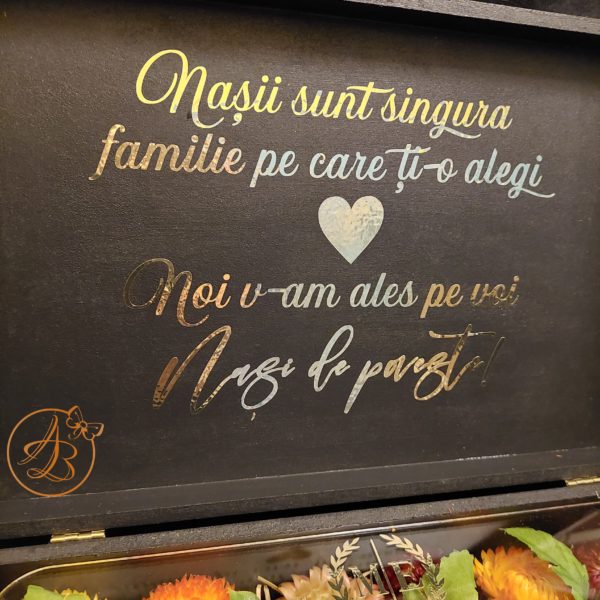 Nașii sunt singura
familie pe care ți-o alegi
Noi v-am ales pe voi
Nași de poveste!
AB